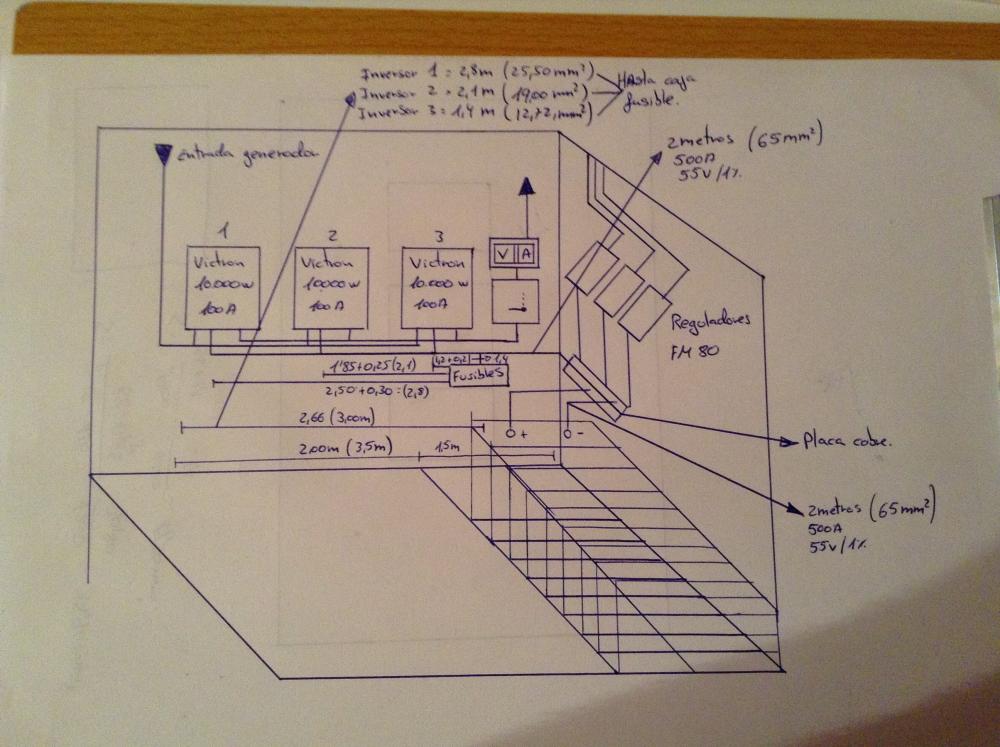 Inversor 1 = 2,8m (25,50mm²)
Inversor 2 = 2,1m (19,00mm²)
Inversor 3 = 1,4m (12,72,mm²)
Hasta caja
fusible.
2 metros (65mm²)
500A
55V/1%
Entrada generador
1
2
3
Victron
10.000w
100A
Victron
10000w
100A
Victron
10.000w
100A
V A
Reguladores
FM 80
1'85+0,25(2,1)
1,2+0,2
1,4
Fusibles
2,50+0,30=(2,8)
2,66 (3,00m)
+
-
2.00m (3,5m)
1,5m
Placa cobre.
2metros (65mm²)
500A
55V/1%